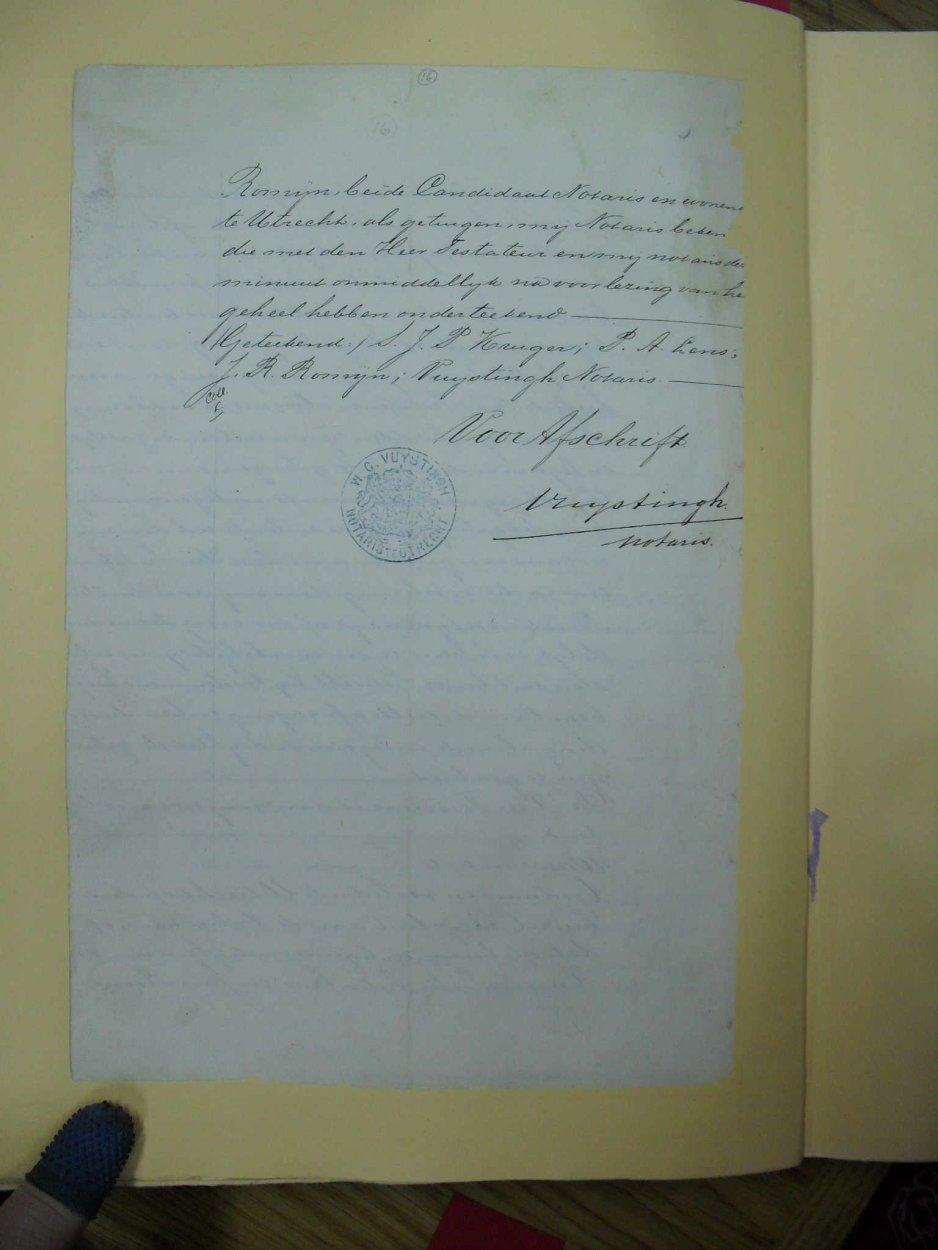 16
16
Romijn, beide Candidaat Notaris en wonen
te Utrecht, als getuigen, mij Notaris beken
die met den Heer Testateur en mij notaris de
minuut onmiddellijk na voorlezing van he
geheel hebben onderteekend
/Geteekend:/ S. J. P Kruger; P. A. Lens;
J. R. Romijn; Vuystingh Notaris.
Coll.
Voor Afschrift
W. C. VUYSTINGH
NOTARIS TE UTRECHT
Vuystingh.
notaris.